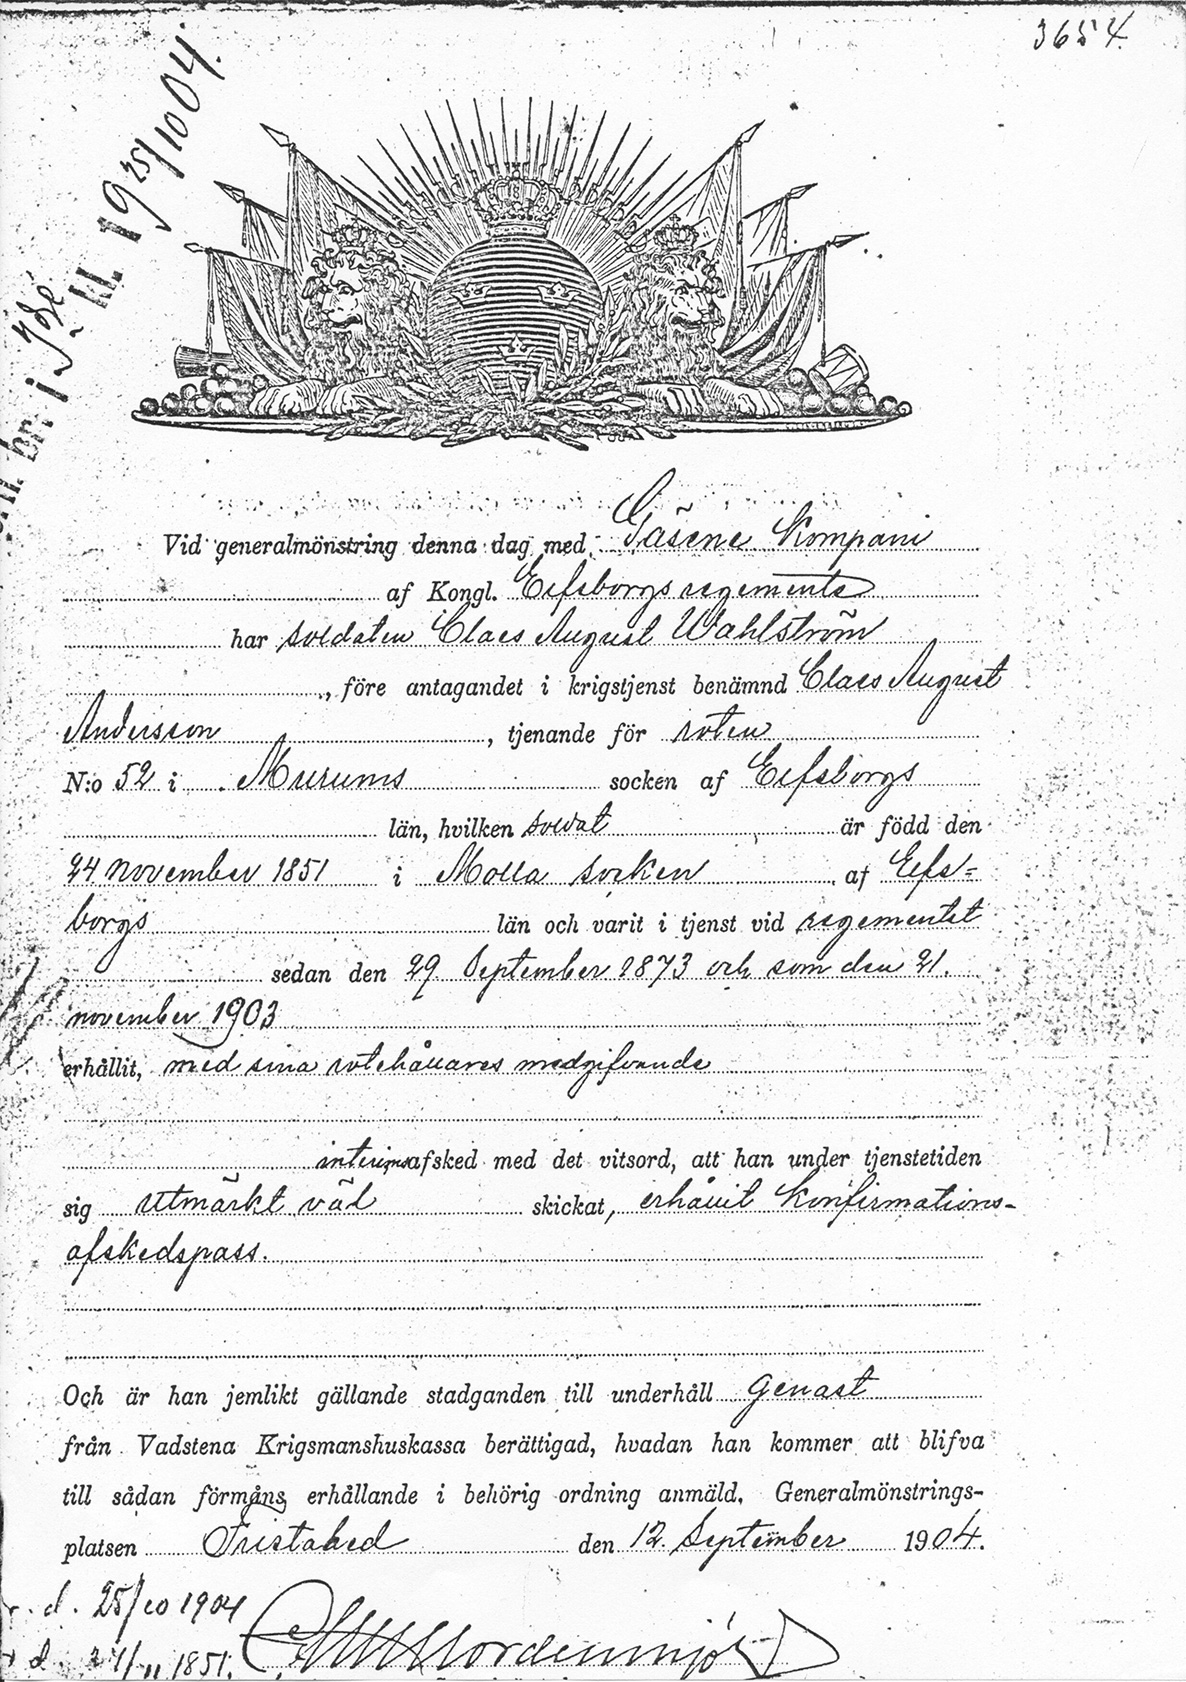 3654.
br. i
kl. 19 25/10 04.
Vid generalmönstring denna dag med Gäsene Kompani
af Kongl. Elfsborgs regemente
har soldaten Claes August Wahlström
, före antagandet i krigstjenst benämnd Claes August
Andersson, tjenande för roten
N:o 52 i Murums socken af Elfsborgs
län, hvilken soldat är född den
24 november 1851 i Molla socken af Elfs-
borgs län och varit i tjenst vid regementet
sedan den 29 September 1873 och som den 21.
november 1903
erhållit, med sina rotehållares medgifvande
interimsafsked med det vitsord, att han under tjenstetiden
sig utmärkt väl skickat, erhållit Konfirmations-
afskedspass.
Och är han jemlikt gällande stadganden till underhåll genast
från Vadstena Krigsmanshuskassa berättigad, hvadan han kommer att blifva
till sådan förmåns erhållande i behörig ordning anmäld. Generalmönstrings-
platsen Fristahed den 12. September 1904.
d. 25/10 1904
d. 24/11 1851.